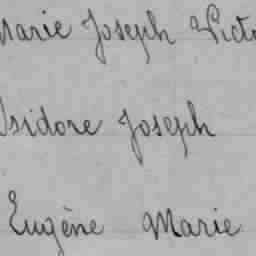 Marie Joseph Victo
Isidore Joseph
Eugène Marie